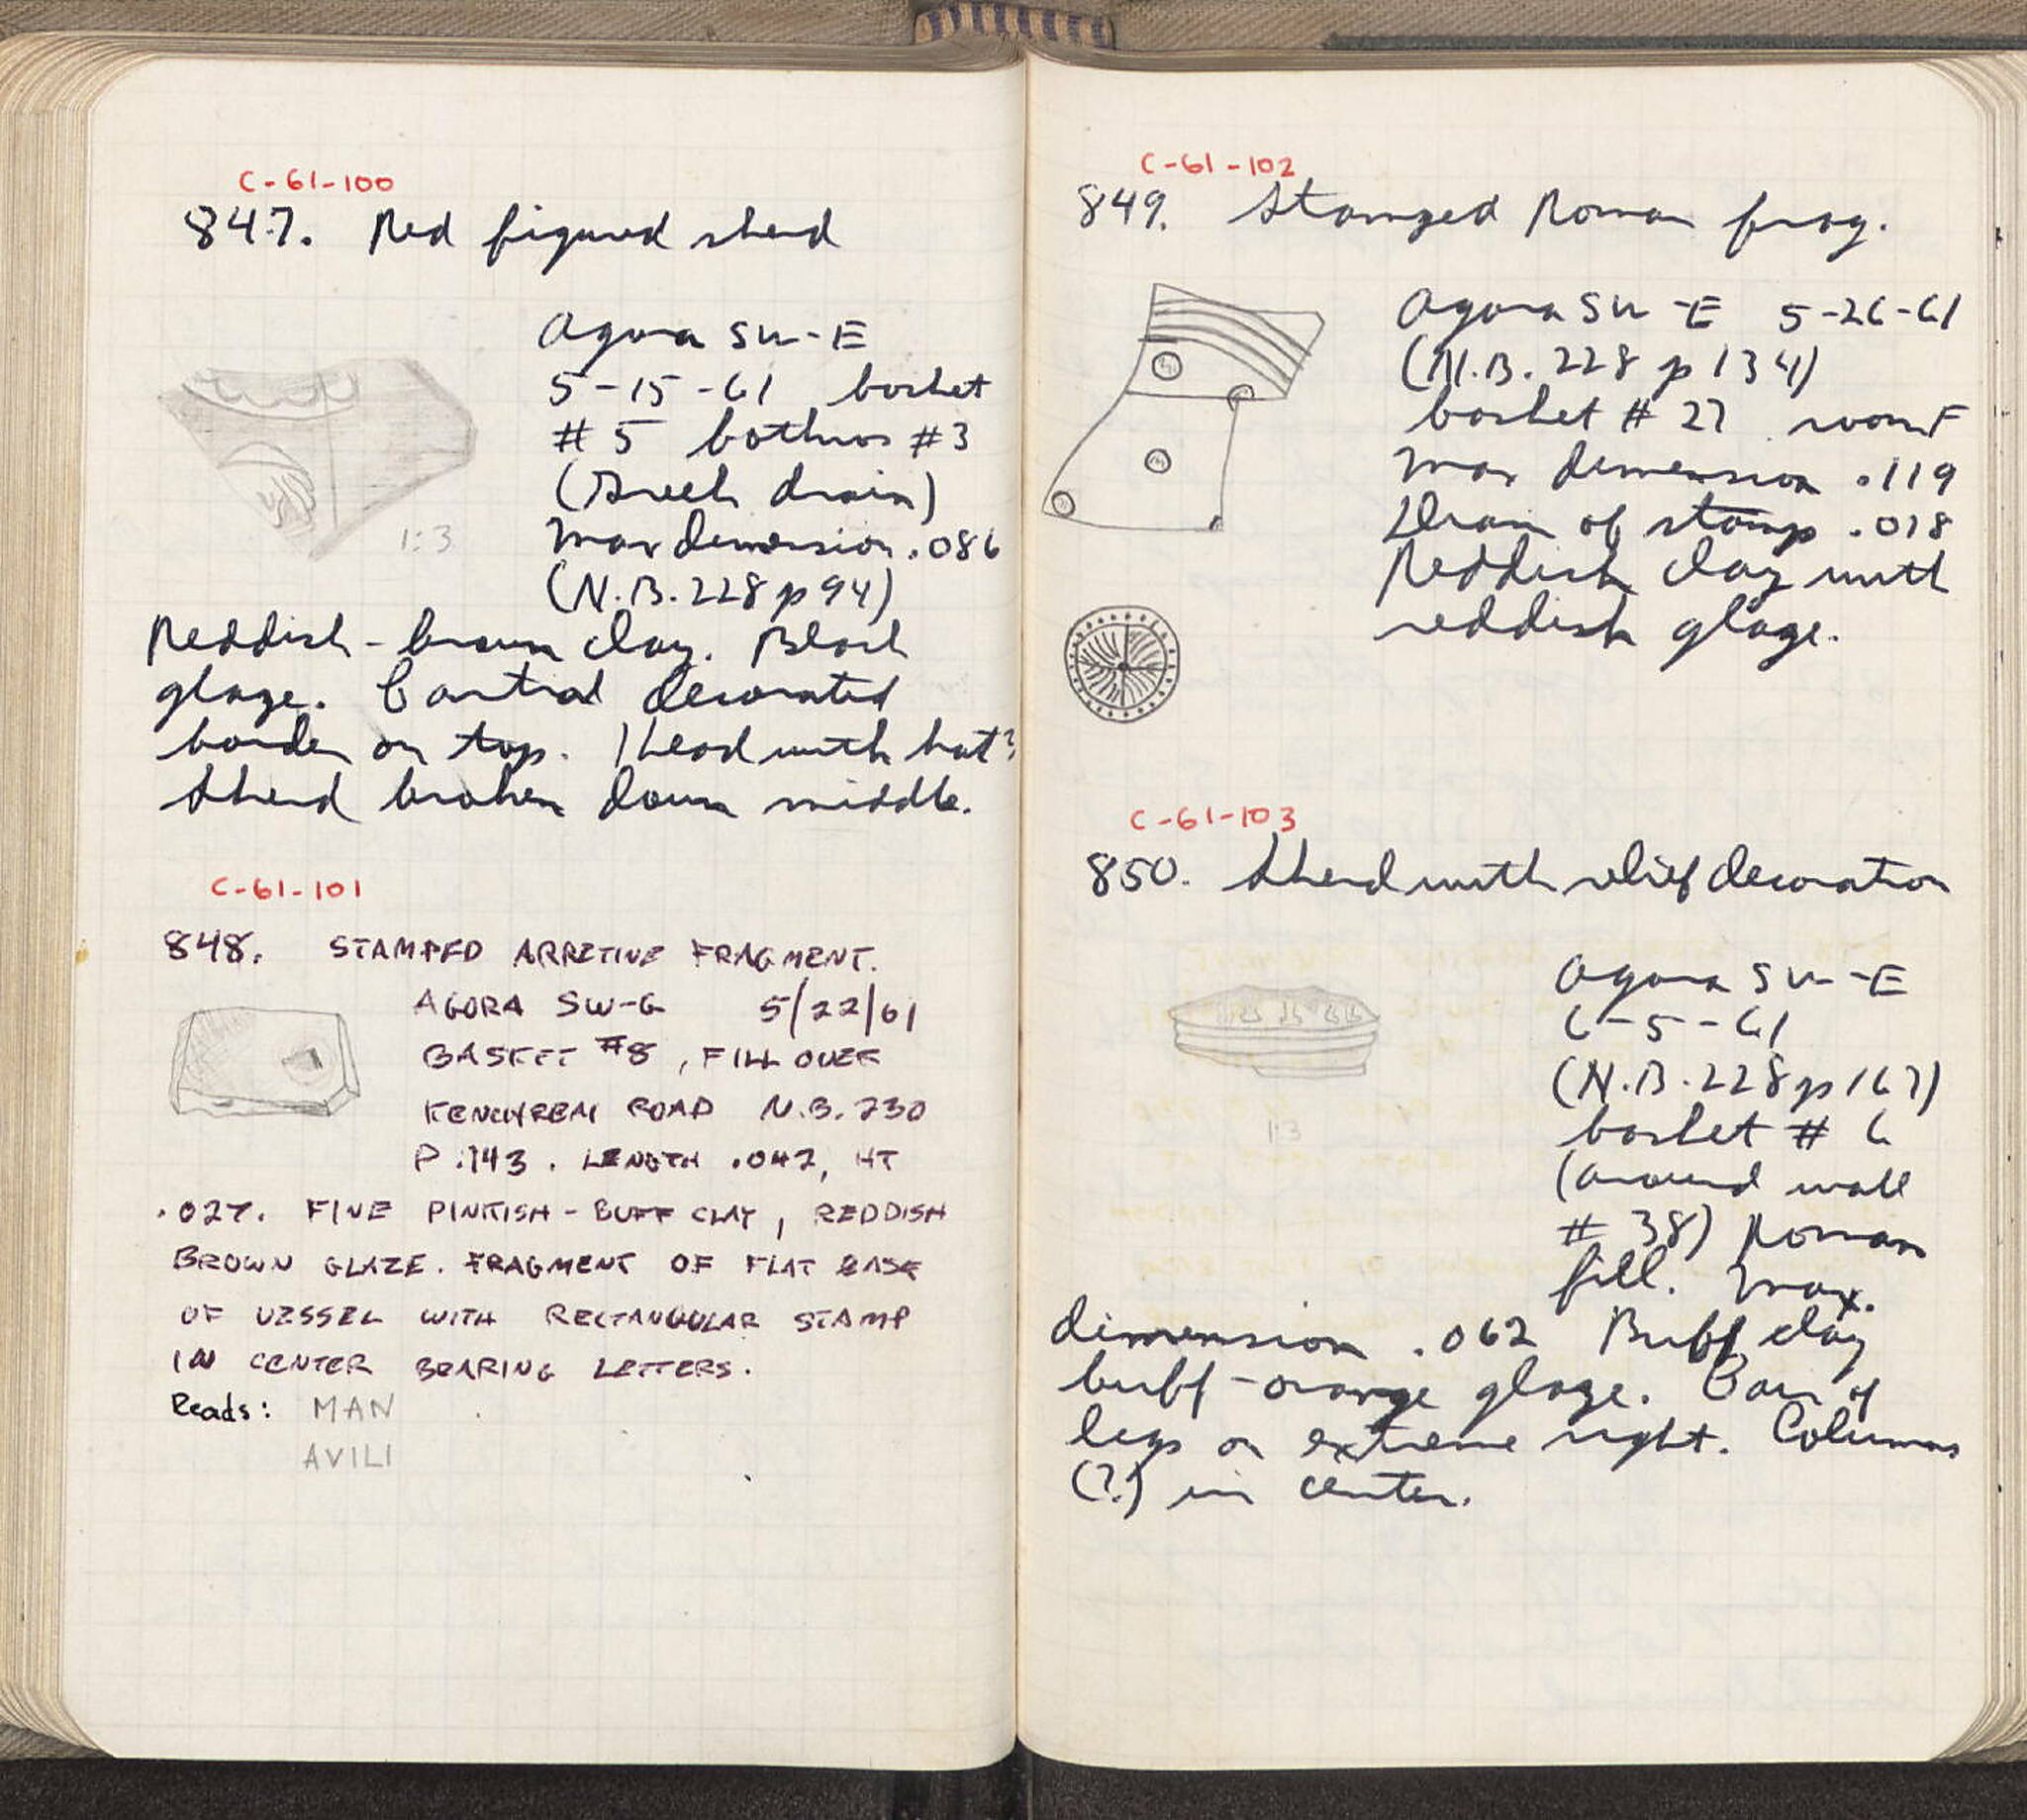 C-61-100
847. Red figured sherd
Agora SW-E
5-15-61 basket
# 5 bothros #3
(Greek drain)
Max dimension .086
(N.B. 228 p 94)
1:3
Reddish-brown clay. Black
glaze. Partial decorated
border on top. Head with hat?
Sherd broken down middle.
C-61-101
848. STAMPED ARRETINE FRAGMENT.
AGORA SW-G 5/22/61
BASKET #8, FILL OVER
KENCHREAI ROAD N.B. 230
P. 143. LENGTH .042, HT
.027. FINE PINKISH-BUFF CLAY, REDDISH
BROWN GLAZE. FRAGMENT OF FLAT BASE
OF VESSEL WITH RECTANGULAR STAMP
IN CENTER BEARING LETTERS.
Reads: MAN
AVILI
C-61-102
849. Stamped Roman frag.
Agora SW-E 5-26-61
(N.B. 228 p 134)
basket # 27 room F
Max dimension .119
Diam of stamp .018
Reddish clay with
reddish glaze.
C-61-103
850. Sherd with relief decoration
Agora SW-E
6-5-61
(N.B. 228 p 167)
basket # 6
(around wall
# 38) Roman
fill. Max.
1:3
dimension .062 Buff clay
buff-orange glaze. Pair of
legs on extreme right. Columns
(?) in center.